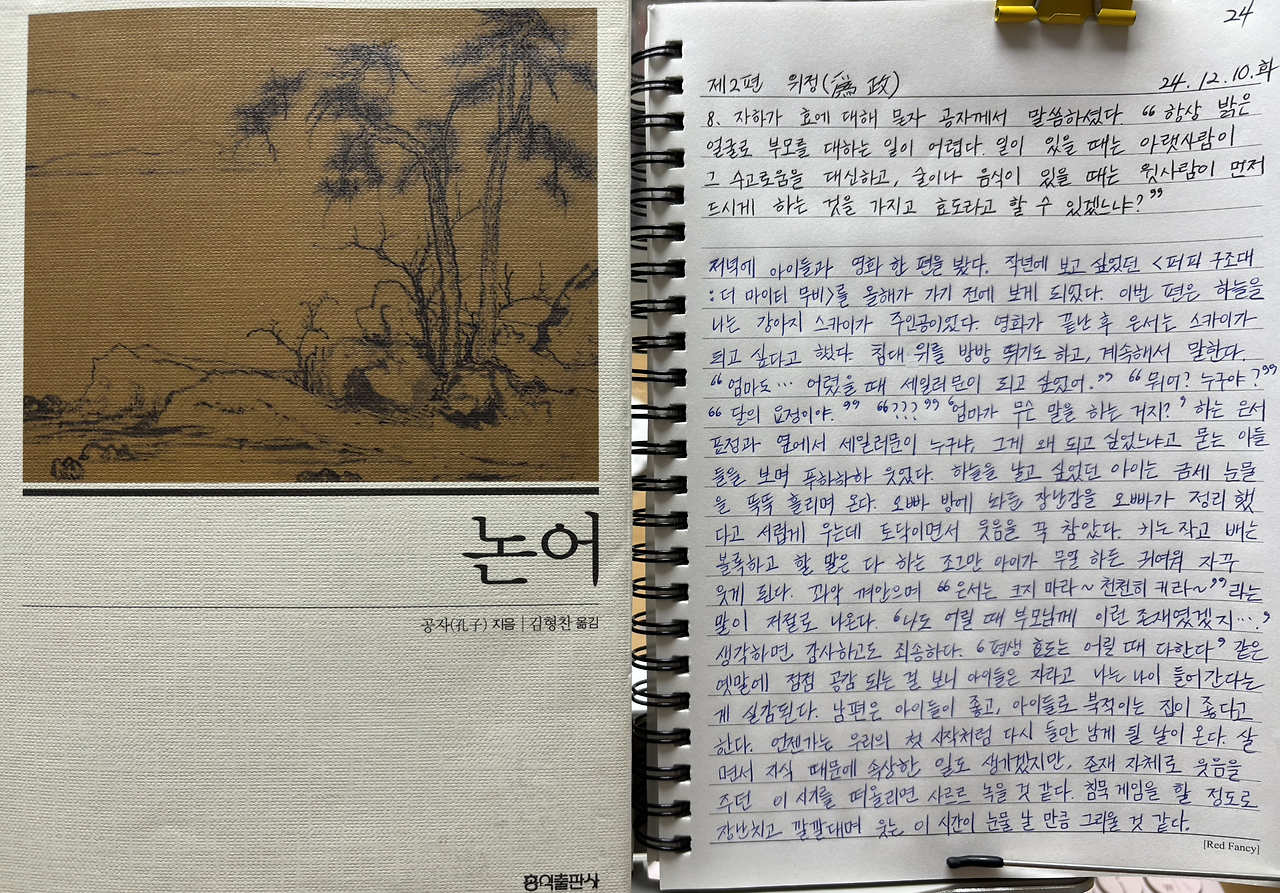 논어
공자(孔子) 지음 | 김형찬 옮김
홍익출판사
24
제2편 위정(爲政) 24.12.10.화
8. 자하가 효에 대해 묻자 공자께서 말씀하셨다. “항상 밝은
얼굴로 부모를 대하는 일이 어렵다. 일이 있을 때는 아랫사람이
그 수고로움을 대신하고, 술이나 음식이 있을 때는 윗사람이 먼저
드시게 하는 것을 가지고 효도라고 할 수 있겠느냐?”
저녁에 아이들과 영화 한 편을 봤다. 작년에 보고 싶었던 <퍼피 구조대
: 더 마이티 무비>를 올해가 가기 전에 보게 되었다. 이번 편은 하늘을
나는 강아지 스카이가 주인공이었다. 영화가 끝난 후 은서는 스카이가
되고 싶다고 했다. 침대 위를 방방 뛰기도 하고, 계속해서 말한다.
“엄마도… 어렸을 때 세일러문이 되고 싶었어.” “뭐어? 누구야?”
“달의 요정이야.” “???” ‘엄마가 무슨 말을 하는 거지?’ 하는 은서
표정과 옆에서 세일러문이 누구냐, 그게 왜 되고 싶었느냐고 묻는 아들
들을 보며 푸하하하 웃었다. 하늘을 날고 싶었던 아이는 금세 눈물
을 뚝뚝 흘리며 온다. 오빠 방에 놔둔 장난감을 오빠가 정리했
다고 서럽게 우는데 토닥이면서 웃음을 꾹 참았다. 키는 작고 배는
볼록하고 할 말은 다 하는 조그만 아이가 무얼 하든 귀여워 자꾸
웃게 된다. 꽈악 껴안으며 “은서는 크지 마라~ 천천히 커라~”라는
말이 저절로 나온다. ‘나도 어릴 때 부모님께 이런 존재였겠지….’
생각하면 감사하고도 죄송하다. ‘평생 효도는 어릴 때 다한다’ 같은
옛말에 점점 공감 되는 걸 보니 아이들은 자라고 나는 나이 들어간다는
게 실감된다. 남편은 아이들이 좋고, 아이들로 북적이는 집이 좋다고
한다. 언젠가는 우리의 첫 시작처럼 다시 둘만 남게 될 날이 온다. 살
면서 자식 때문에 속상한 일도 생기겠지만, 존재 자체로 웃음을
주던 이 시기를 떠올리면 사르르 녹을 것 같다. 침묵 게임을 할 정도로
장난치고 깔깔대며 웃는 이 시간이 눈물 날 만큼 그리울 것 같다.
[Red Fancy]